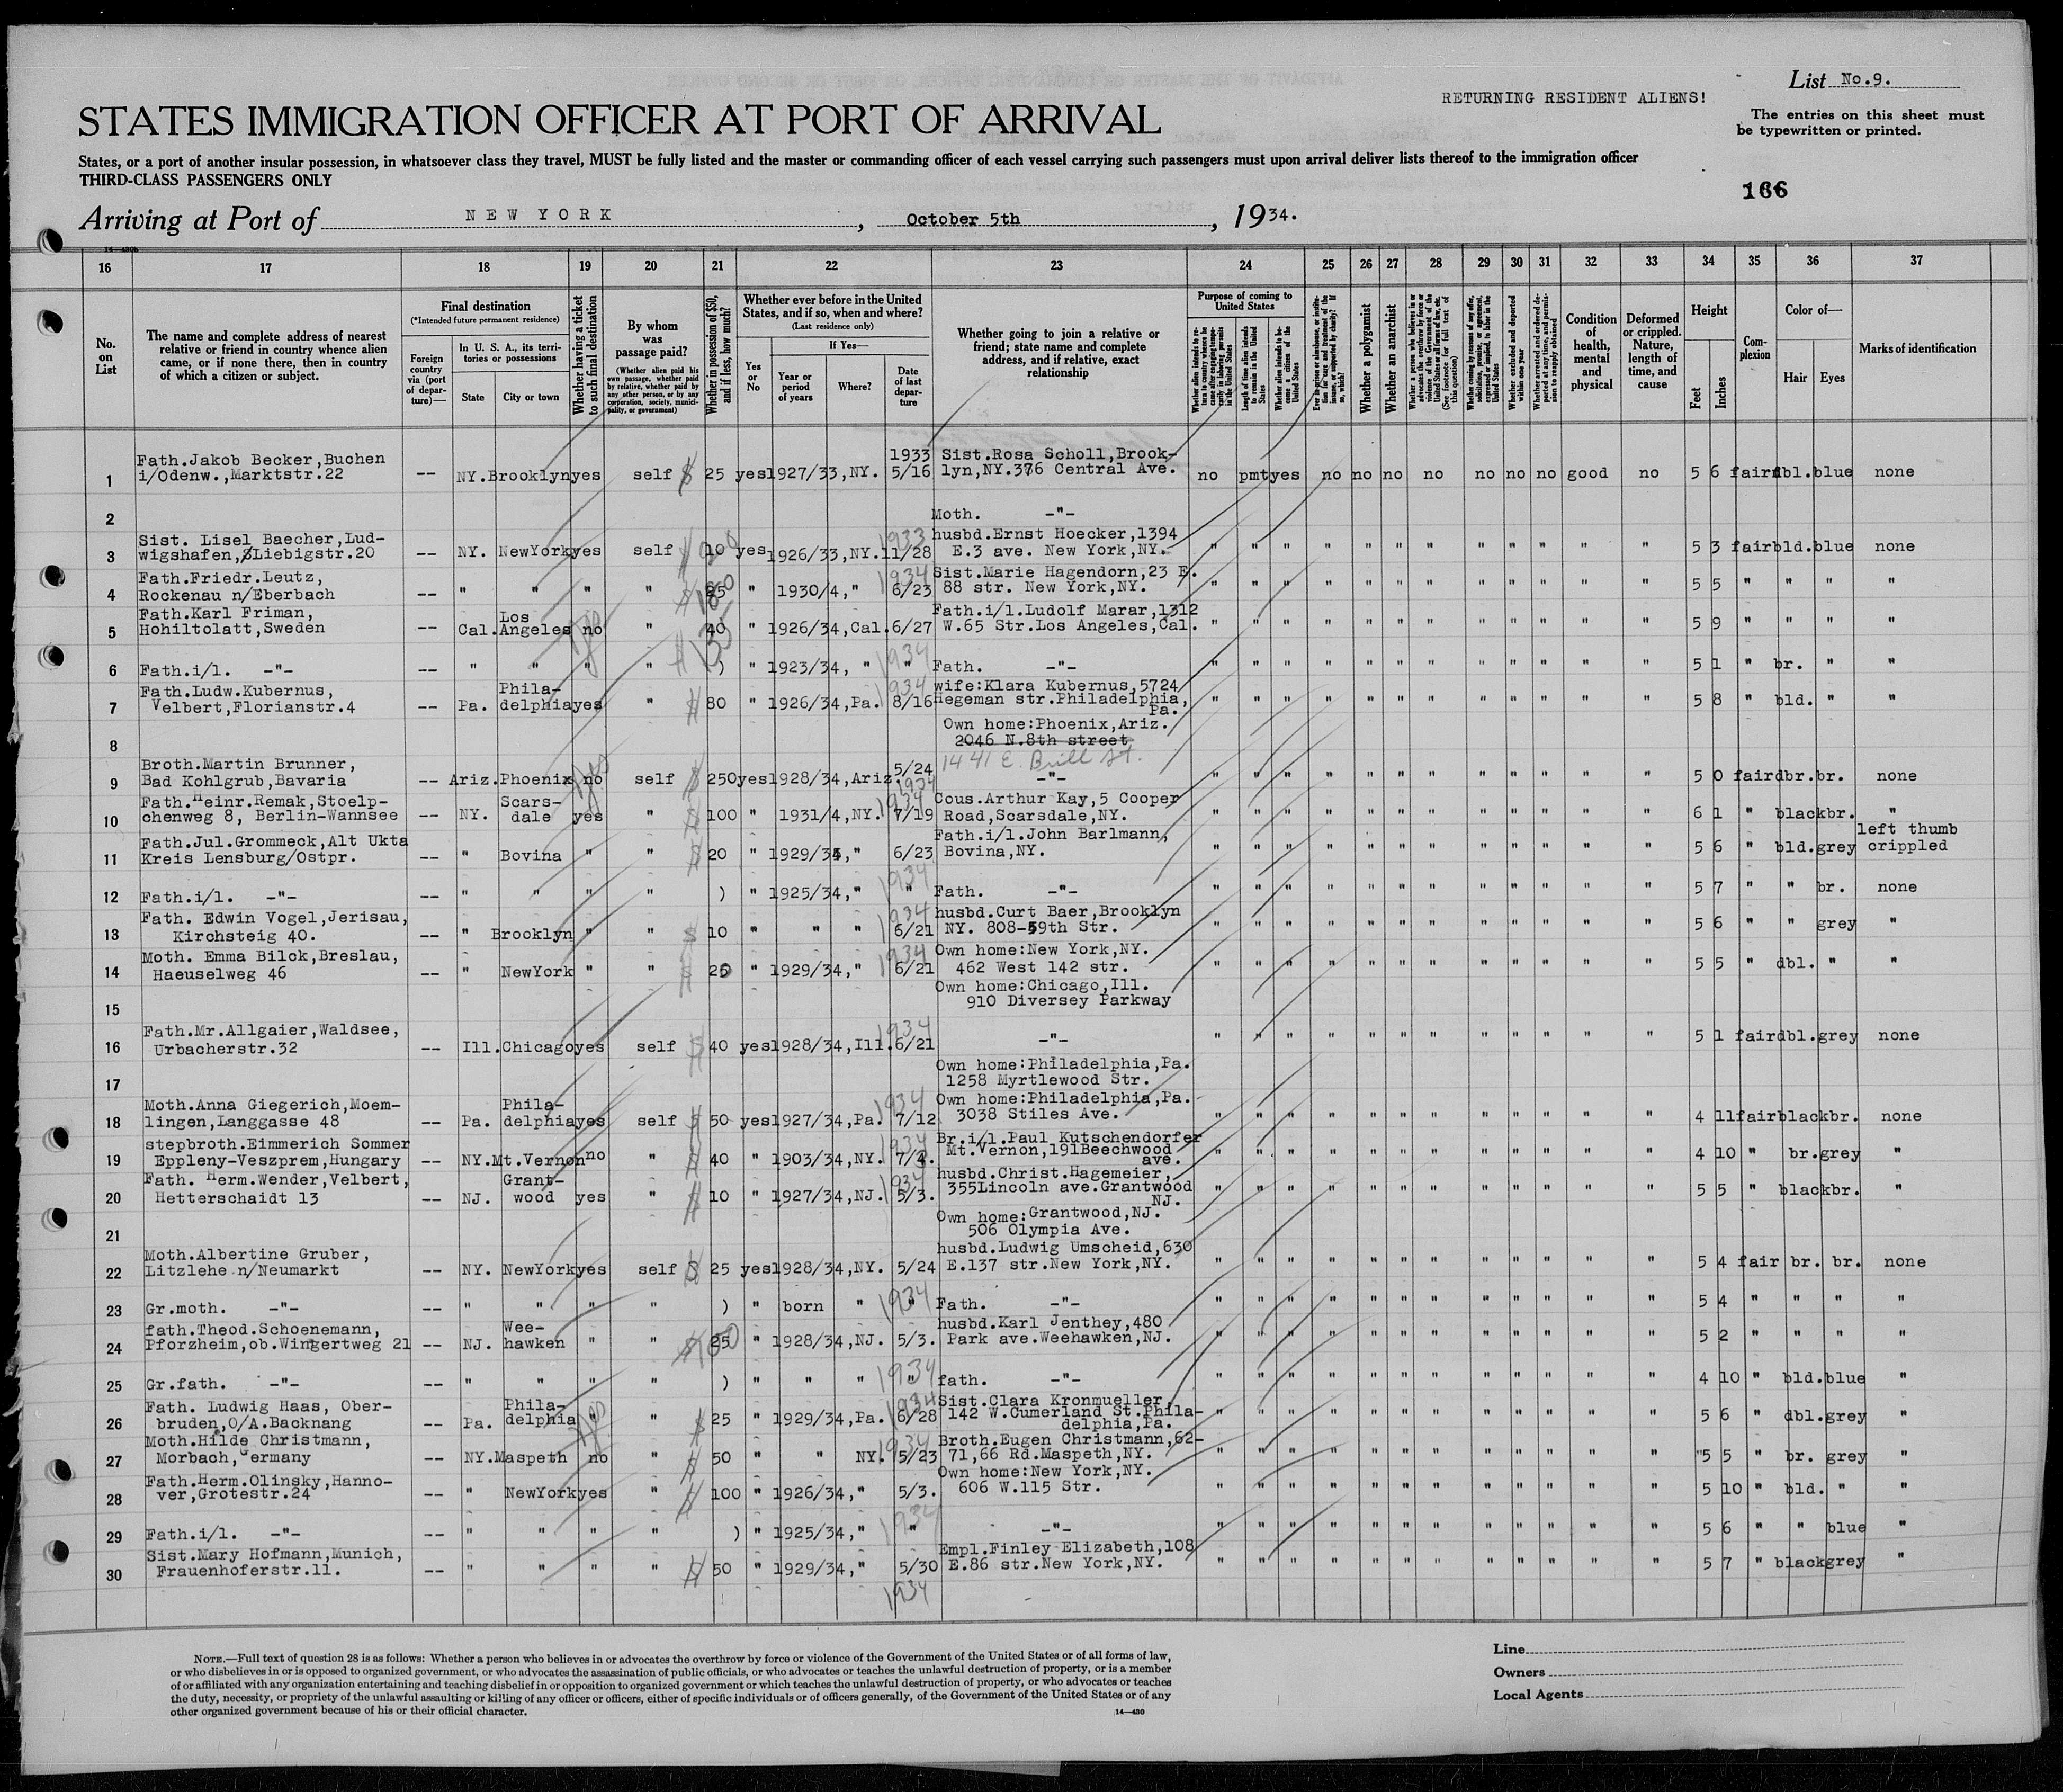 List No.9.
RETURNING RESIDENT ALIENS!
The entries on this sheet must
be typewritten or printed.
STATES IMMIGRATION OFFICER AT PORT OF ARRIVAL
States, or a port of another insular possession, in whatsoever class they travel, MUST be fully listed and the master or commanding officer of each vessel carrying such passengers must upon arrival deliver lists thereof to the immigration officer
THIRD-CLASS PASSENGERS ONLY
166
Arriving at Port of NEW YORK, October 5th, 1934.
16 17 18 19 20 21 22 23 24 25 26 27 28 29 30 31 32 33 34 35 36 37
No. on List
The name and complete address of nearest relative or friend in country whence alien came, or if none there, then in country of which a citizen or subject.
Final destination
(*Intended future permanent residence)
Foreign country via (port of departure)—
In U. S. A., its territories or possessions
State
City or town
Whether having a ticket to such final destination
By whom was passage paid?
(Whether alien paid his own passage, whether paid by relative, whether paid by any other person, or by any corporation, society, municipality, or government)
Whether in possession of $50, and if less, how much?
Whether ever before in the United States, and if so, when and where?
(Last residence only)
Yes or No
If Yes—
Year or period of years
Where?
Date of last departure
Whether going to join a relative or friend; state name and complete address, and if relative, exact relationship
Purpose of coming to United States
Length of time alien intends to remain in the United States
Whether alien intends to become a citizen of the United States
Whether a polygamist
Whether an anarchist
Whether excluded and deported within one year
Condition of health, mental and physical
Deformed or crippled. Nature, length of time, and cause
Height
Feet
Inches
Complexion
Color of—
Hair
Eyes
Marks of identification
1 Fath.Jakob Becker,Buchen i/Odenw.,Marktstr.22 -- NY. Brooklyn yes self $ 25 yes 1927/33,NY. 1933 5/16 Sist.Rosa Scholl,Brook-lyn,NY.376 Central Ave. no pmt yes no no no no no no no good no 5 6 fair dbl. blue none
2 Moth. -"-
3 Sist. Lisel Baecher,Lud-wigshafen,Liebigstr.20 -- NY. NewYork yes self 10 yes 1926/33,NY. 1933 11/28 husbd.Ernst Hoecker,1394 E.3 ave. New York,NY. " " " " " " " " " " " " 5 3 fair bld. blue none
4 Fath.Friedr.Leutz, Rockenau n/Eberbach -- " " " " " 1930/4," 1934 6/23 Sist.Marie Hagendorn,23 E. 88 str. New York,NY. " " " " " " " " " " " " 5 5 " " " "
5 Fath.Karl Friman, Hohiltolatt,Sweden -- Cal. Los Angeles no " 40 " 1926/34,Cal. 6/27 Fath.i/l.Ludolf Marar,1312 W.65 Str.Los Angeles,Cal. " " " " " " " " " " " " 5 9 " " " "
6 Fath.i/l. -"- -- " " " " ) " 1923/34, " 1934 " Fath. -"- " " " " " " " " " " " " 5 1 " br. " "
7 Fath.Ludw.Kubernus, Velbert,Florianstr.4 -- Pa. Phila-delphia yes " 80 " 1926/34,Pa. 1934 8/16 wife:Klara Kubernus,5724 Hegeman str.Philadelphia, Pa. " " " " " " " " " " " " 5 8 " bld. " "
8 Own home:Phoenix,Ariz. 2046 N.8th street 1441 E. Brill St.
9 Broth.Martin Brunner, Bad Kohlgrub,Bavaria -- Ariz. Phoenix no self $ 250 yes 1928/34,Ariz. 5/24 1934 -"- " " " " " " " " " " " " 5 0 fair dbr. br. none
10 Fath.Heinr.Remak,Stoelp-chenweg 8, Berlin-Wannsee -- NY. Scars-dale yes " $ 100 " 1931/4,NY. 1934 7/19 Cous.Arthur Kay,5 Cooper Road,Scarsdale,NY. " " " " " " " " " " " " 6 1 " black br. "
11 Fath.Jul.Grommeck,Alt Ukta Kreis Lensburg/Ostpr. -- " Bovina " " $ 20 " 1929/34," 6/23 Fath.i/l.John Barlmann, Bovina,NY. " " " " " " " " " " " " 5 6 " bld. grey left thumb crippled
12 Fath.i/l. -"- -- " " " " ) " 1925/34," 1934 " Fath. -"- " " " " " " " " " " " " 5 7 " " br. none
13 Fath. Edwin Vogel,Jerisau, Kirchsteig 40. -- " Brooklyn " " $ 10 " " " 1934 6/21 husbd.Curt Baer,Brooklyn NY. 808-59th Str. " " " " " " " " " " " " 5 6 " " grey "
14 Moth. Emma Bilck,Breslau, Haeuselweg 46 -- " NewYork " " $ 20 " 1929/34," 1934 6/21 Own home:New York,NY. 462 West 142 str. " " " " " " " " " " " " 5 5 " dbl. " "
15 Own home:Chicago,Ill. 910 Diversey Parkway
16 Fath.Mr.Allgaier,Waldsee, Urbacherstr.32 -- Ill. Chicago yes self $ 40 yes 1928/34,Ill. 1934 6/21 -"- " " " " " " " " " " " " 5 1 fair dbl. grey none
17 Own home:Philadelphia,Pa. 1258 Myrtlewood Str.
18 Moth.Anna Giegerich,Moem-lingen,Langgasse 48 -- Pa. Phila-delphia yes self $ 50 yes 1927/34,Pa. 1934 7/12 Own home:Philadelphia,Pa. 3038 Stiles Ave. " " " " " " " " " " " " 4 11 fair black br. none
19 stepbroth.Eimmerich Sommer Eppleny-Veszprem,Hungary -- NY. Mt.Vernon no " $ 40 " 1903/34,NY. 1934 7/4. Br.i/l.Paul Kutschendorfer Mt.Vernon,191Beechwood ave. " " " " " " " " " " " " 4 10 " br. grey "
20 Fath. Herm.Wender,Velbert, Hetterschaidt 13 -- NJ. Grant-wood yes " $ 10 " 1927/34,NJ. 1934 5/3. husbd.Christ.Hagemeier, 355Lincoln ave.Grantwood NJ. " " " " " " " " " " " " 5 5 " black br. "
21 Own home:Grantwood,NJ. 506 Olympia Ave.
22 Moth.Albertine Gruber, Litzlehe n/Neumarkt -- NY. NewYork yes self $ 25 yes 1928/34,NY. 5/24 husbd.Ludwig Umscheid,630 E.137 str.New York,NY. " " " " " " " " " " " " 5 4 fair br. br. none
23 Gr.moth. -"- -- " " " " ) " born " 1934 " Fath. -"- " " " " " " " " " " " " 5 4 " " " "
24 fath.Theod.Schoenemann, Pforzheim,ob.Wingertweg 21 -- NJ. Wee-hawken " " 25 " 1928/34,NJ. 5/3. husbd.Karl Jenthey,480 Park ave.Weehawken,NJ. " " " " " " " " " " " " 5 2 " " " "
25 Gr.fath. -"- -- " " " " ) " " " 1934 " fath. -"- " " " " " " " " " " " " 4 10 " bld. blue "
26 Fath. Ludwig Haas, Ober-bruden,O/A.Backnang -- Pa. Phila-delphia " " $ 25 " 1929/34,Pa. 1934 6/28 Sist.Clara Kronmueller, 142 W.Cumerland St.Phila-delphia,Pa. " " " " " " " " " " " " 5 6 " dbl. grey "
27 Moth.Hilde Christmann, Morbach,Germany -- NY. Maspeth no " $ 50 " " NY. 1934 5/23 Broth.Eugen Christmann,62-71,66 Rd.Maspeth,NY. " " " " " " " " " " " " 5 5 " br. grey "
28 Fath.Herm.Olinsky,Hanno-ver,Grotestr.24 -- " NewYork yes " $ 100 " 1926/34," 5/3. Own home:New York,NY. 606 W.115 Str. " " " " " " " " " " " " 5 10 " bld. " "
29 Fath.i/l. -"- -- " " " " ) " 1925/34," 1934 " -"- " " " " " " " " " " " " 5 6 " " blue "
30 Sist.Mary Hofmann,Munich, Frauenhoferstr.11. -- " " " " $ 50 " 1929/34," 5/30 1934 Empl.Finley Elizabeth,108 E.86 str.New York,NY. " " " " " " " " " " " " 5 7 " black grey "
NOTE.—Full text of question 28 is as follows: Whether a person who believes in or advocates the overthrow by force or violence of the Government of the United States or of all forms of law,
or who disbelieves in or is opposed to organized government, or who advocates the assassination of public officials, or who advocates or teaches the unlawful destruction of property, or is a member
of or affiliated with any organization entertaining and teaching disbelief in or opposition to organized government or which teaches the unlawful destruction of property, or who advocates or teaches
the duty, necessity, or propriety of the unlawful assaulting or killing of any officer or officers, either of specific individuals or of officers generally, of the Government of the United States or of any
other organized government because of his or their official character.
14—430
Line
Owners
Local Agents